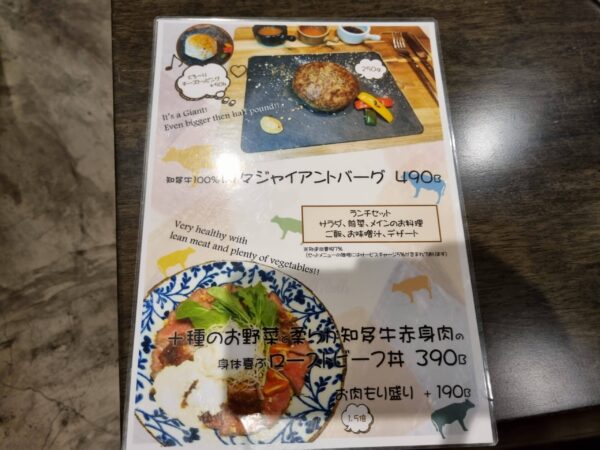 とろ〜り
チーズトッピング
+90฿
250g
It's a Giant!
Even bigger then half pound!!
知多牛100% マジャイアントバーグ 490฿
ランチセット
サラダ、前菜、メインのお料理
ご飯、お味噌汁、デザート
※別途消費税7%
Very healthy with
lean meat and plenty of vegetables!!
十種のお野菜と柔らか知多牛赤身肉の
身体喜ぶローストビーフ丼 390฿
お肉もり盛り +190฿
1.5倍